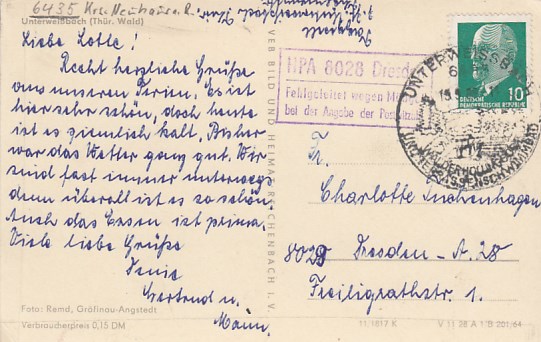 6435 Krs. Neuhaus a. R.
Unterweißbach (Thür. Wald)
Liebe Lotte!
Recht herzliche Grüße
aus unseren Ferien. Es ist
hier sehr schön, doch heute
ist es ziemlich kalt. Bisher
war das Wetter ganz gut. Wir
sind fast immer unterwegs
denn überall ist es so schön.
Auch das Essen ist prima.
Viele liebe Grüße
Gertrud u.
Mann.
Foto: Remd, Gräfinau-Angstedt
Verbraucherpreis 0,15 DM
VEB BILD UND HEIMAT REICHENBACH I. V.
HPA 8028 Dresden
Fehlgeleitet wegen
bei der Angabe der Postleitzahl
UNTERWEISSBACH
DEUTSCHE
DEMOKRATISCHE REPUBLIK
10
Fr.
Charlotte
8029 Dresden-A. 28
Freiligrathstr. 1.
11/1617 K
V 11 28 A 1 B 201/64